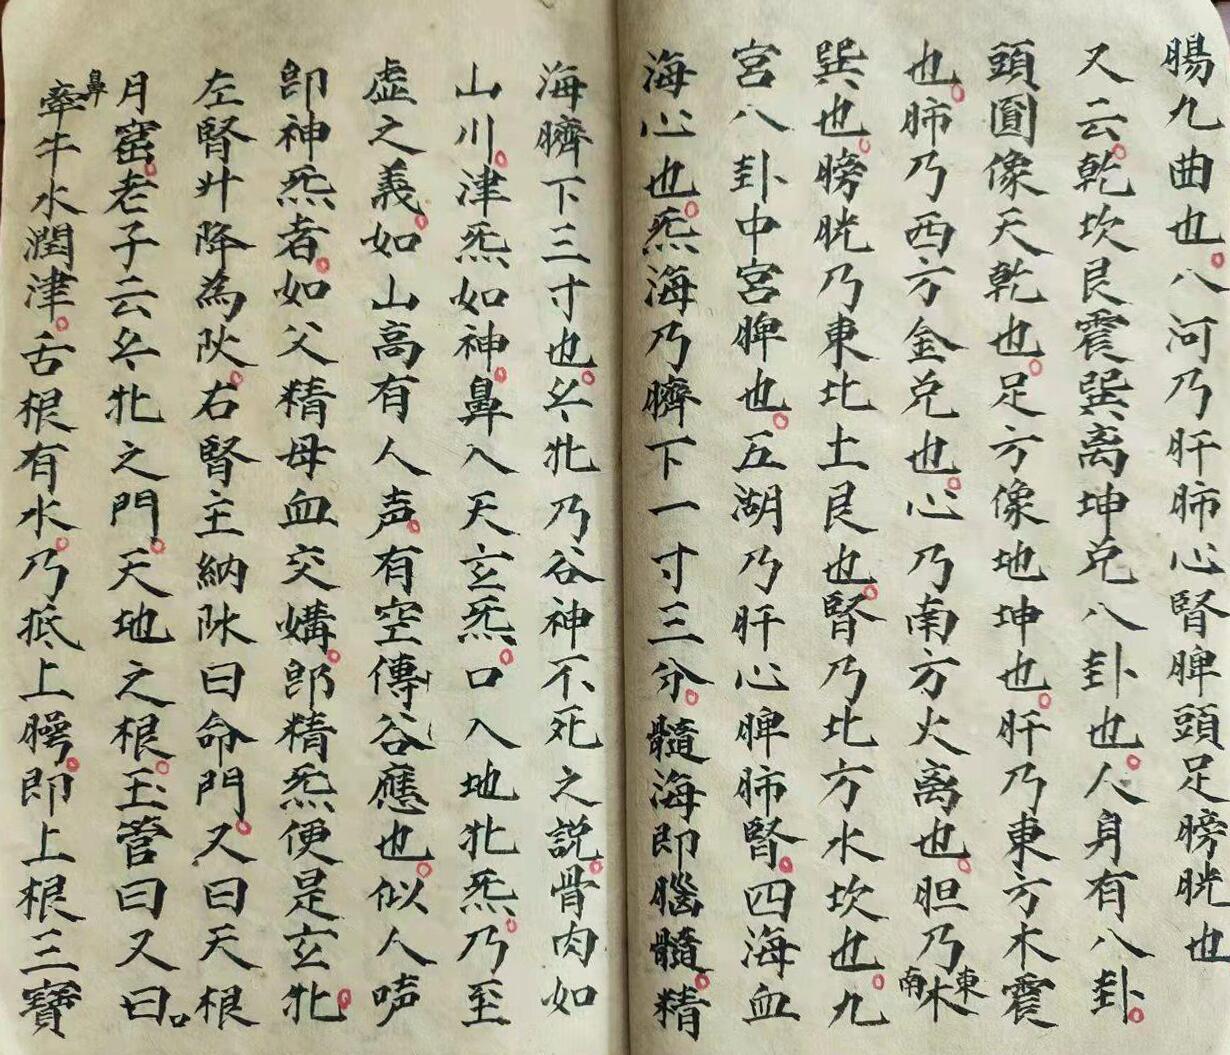 腸九曲也。八河乃肝肺心腎脾頭足膀胱也
又云。乾坎艮震巽离坤兑八卦也。人身有八卦。
頭圓像天乾也。足方像地坤也。肝乃東方木震
也。肺乃西方金兑也。心乃南方火离也。胆乃東南木
巽也。膀胱乃東北土艮也。腎乃北方水坎也。九
宮八卦中宮脾也。五湖乃肝心脾肺腎。四海血
海心也。炁海乃臍下一寸三分。髓海即腦髓。精
海臍下三寸也。玄牝乃谷神不死之説。骨肉如
山川。津炁如神。鼻入天玄炁。口入地牝炁。乃至
虛之義。如山高有人声。有空傳谷應也。似人唪
即神炁者。如父精母血交媾。即精炁便是玄牝。
左腎升降為阦。右腎主納阥曰命門。又曰天根
月窟。老子云玄牝之門。天地之根。玉管曰又曰。
鼻牽牛水潤津。舌根有水。乃抵上腭。即上根三寶